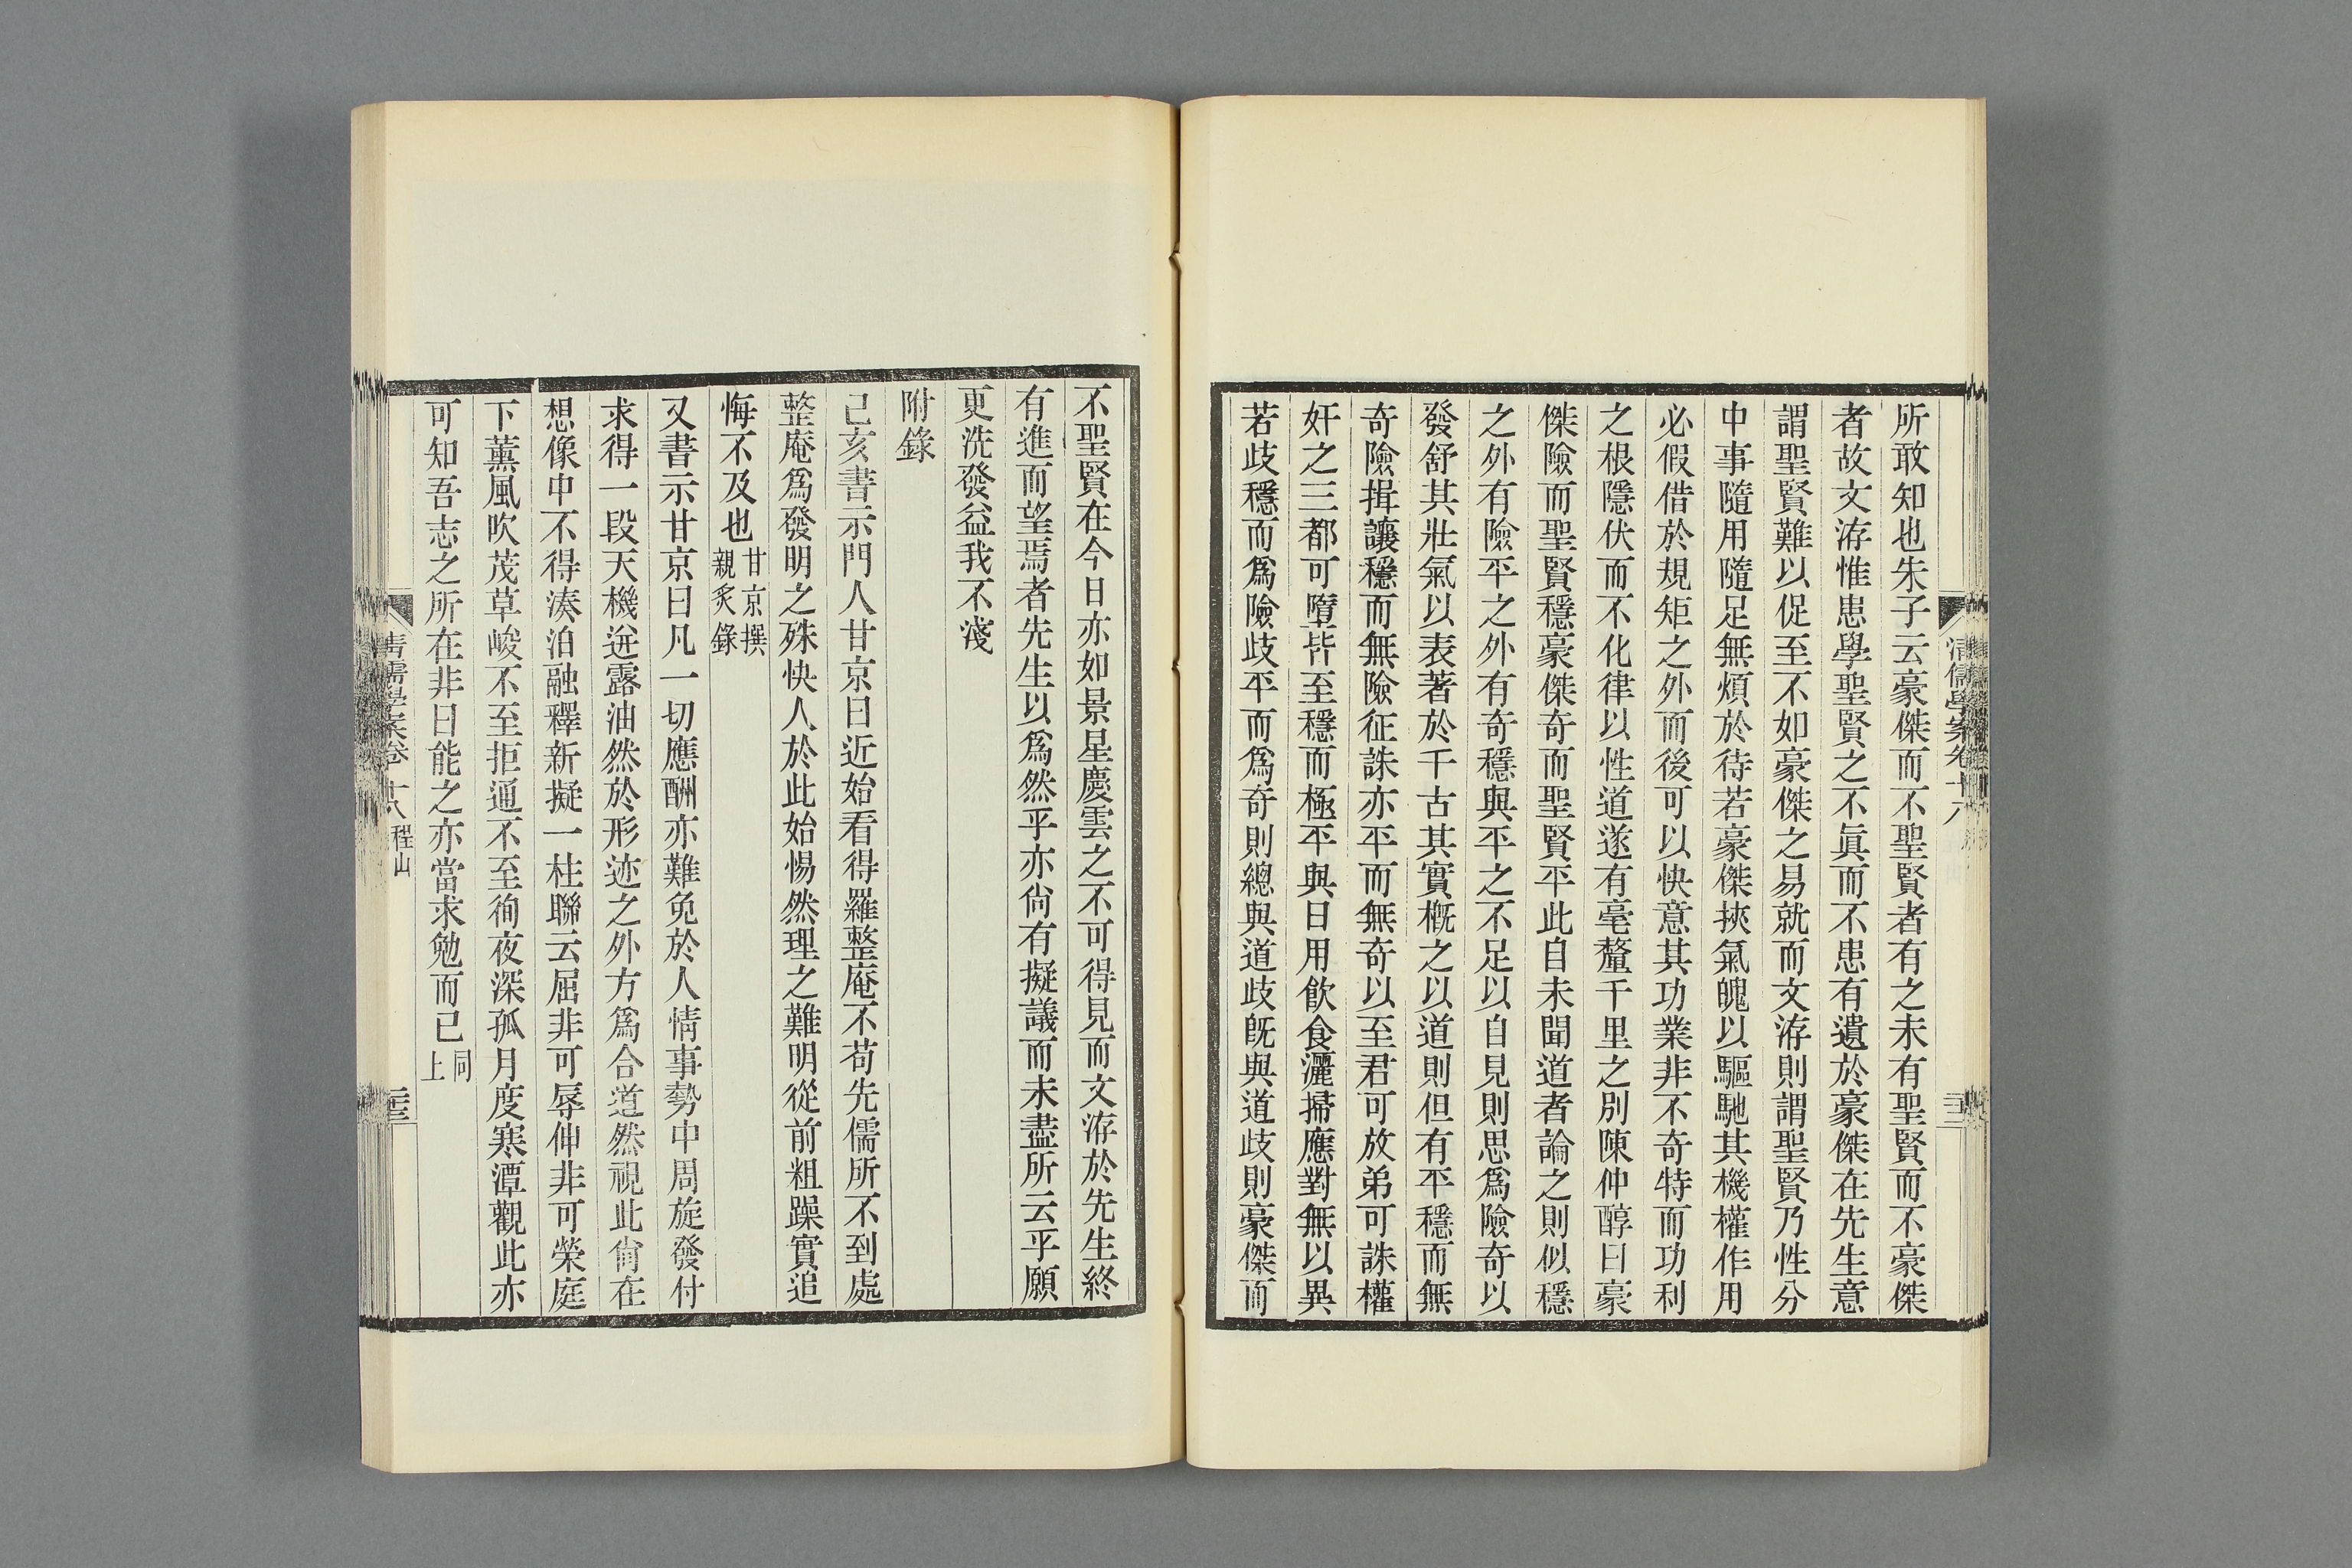 所敢知也朱子云豪傑而不聖賢者有之未有聖賢而不豪傑
者故文洊惟患學聖賢之不眞而不患有遺於豪傑在先生意
謂聖賢難以促至不如豪傑之易就而文洊則謂聖賢乃性分
中事隨用隨足無煩於待若豪傑挾氣魄以驅馳其機權作用
必假借於規矩之外而後可以快意其功業非不奇特而功利
之根隱伏而不化律以性道遂有毫釐千里之別陳仲醇曰豪
傑險而聖賢穩豪傑奇而聖賢平此自未聞道者論之則似穩
之外有險平之外有奇穩與平之不足以自見則思爲險奇以
發舒其壯氣以表著於千古其實槪之以道則但有平穩而無
奇險揖讓穩而無險征誅亦平而無奇以至君可放弟可誅權
奸之三都可墮皆至穩而極平與日用飮食灑掃應對無以異
若歧穩而爲險歧平而爲奇則總與道歧旣與道歧則豪傑而
清儒學案卷十八
不聖賢在今日亦如景星慶雲之不可得見而文洊於先生終
有進而望焉者先生以爲然乎亦尙有擬議而未盡所云乎願
更洗發益我不淺
附錄
己亥書示門人甘京曰近始看得羅整庵不苟先儒所不到處
整庵爲發明之殊快人於此始惕然理之難明從前粗躁實追
悔不及也甘京撰
親炙錄
又書示甘京曰凡一切應酬亦難免於人情事勢中周旋發付
求得一段天機迸露油然於形迹之外方爲合道然視此尙在
想像中不得湊泊融釋新擬一柱聯云屈非可辱伸非可榮庭
下薰風吹茂草峻不至拒通不至徇夜深孤月度寒潭觀此亦
可知吾志之所在非曰能之亦當求勉而已同
上
清儒學案卷十八 程山